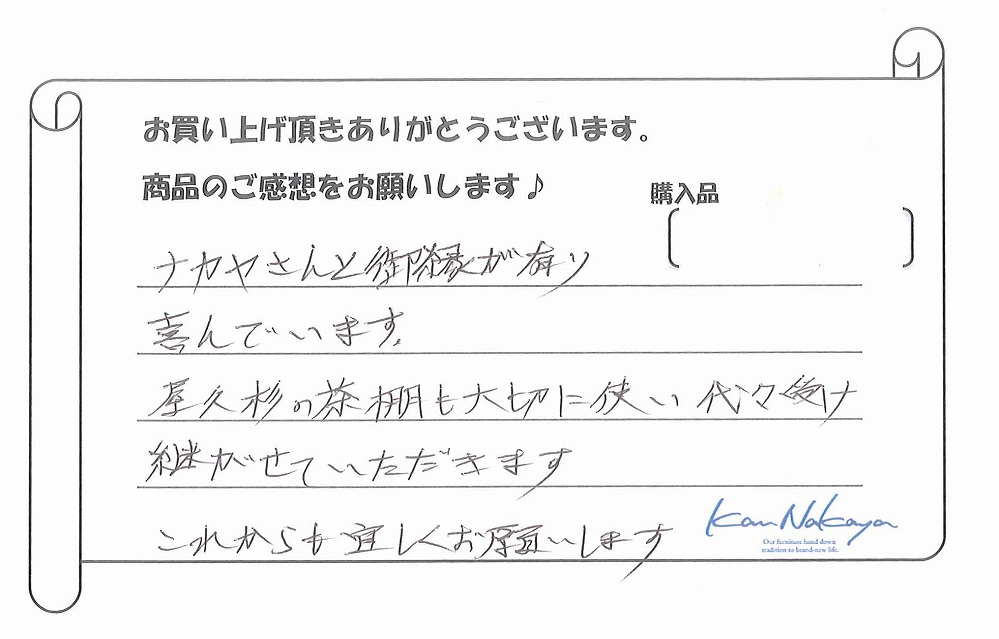 お買い上げ頂きありがとうございます。
商品のご感想をお願いします♪
購入品
ナカヤさんと御縁が有り
喜んでいます。
屋久杉の茶棚も大切に使い代々受け
継がせていただきます
これからも宜しくお願いします
Kan Nakaya
Our furniture hand down
tradition to brand-new life.